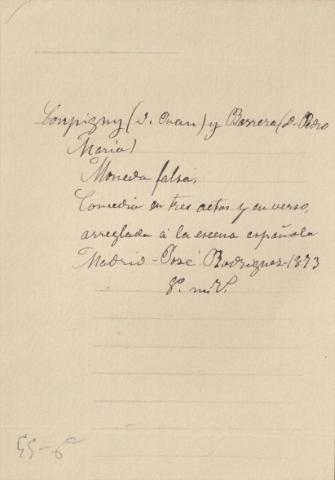 Coupigny (D. Juan) y Barrera (D. Pedro
María)
Moneda falsa,
Comedia en tres actos y en verso,
arreglada á la escena española
Madrid - José Rodriguez - 1873
8º mll.
55-6ª